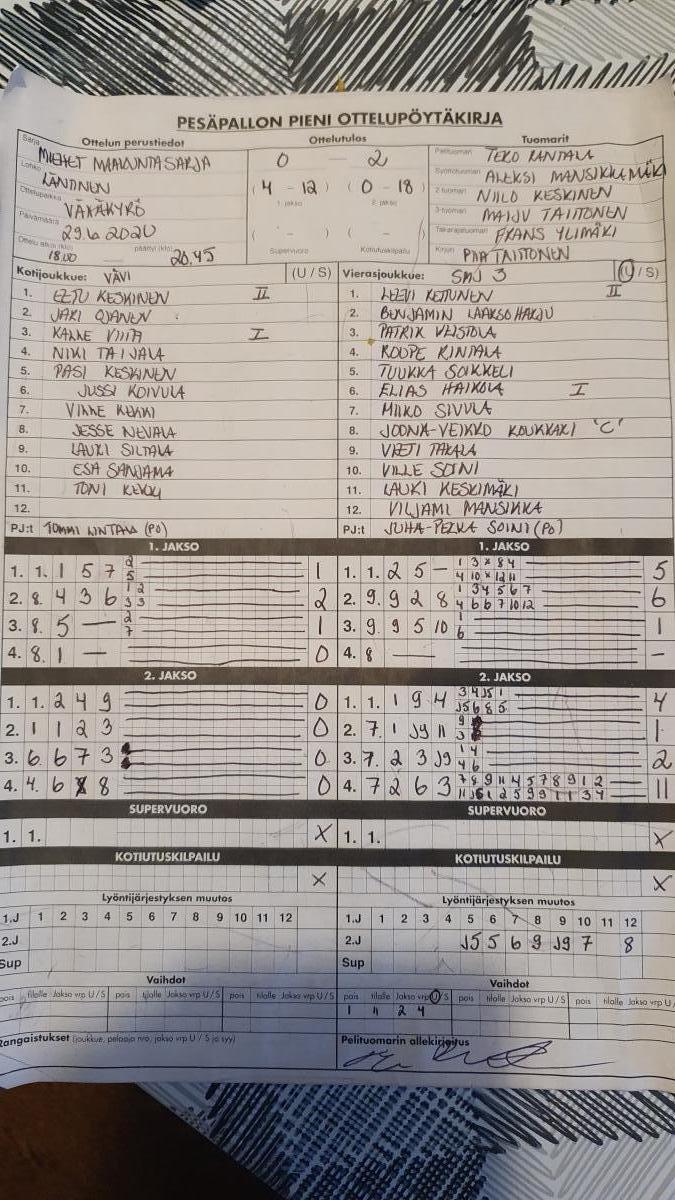 PESÄPALLON PIENI OTTELUPÖYTÄKIRJA
Ottelun perustiedot
Ottelutulos
Tuomarit
Sarja MIEHET MAAKUNTASARJA
Lohko LÄNTINEN
Ottelupaikka VÄHÄKYRÖ
Päivämäärä 29.6 2020
Ottelu alkoi (klo) 18.00 päättyi (klo) 20.45
0 – 2
(4 – 12) (0 – 18)
1. jakso 2. jakso
( - ) ( - )
Supervuoro Kotiutuskilpailu
Pelituomari TERO RANTALA
Syöttötuomari ALEKSI MANSIKKAMÄKI
2-tuomari NIILO KESKINEN
3-tuomari MAIJU TAITTONEN
Takarajatuomari FRANS YLIMÄKI
Kirjuri PIIA TAITTONEN
Kotijoukkue: VÄVI (U / S)
1. EETU KESKINEN II
2. JARI OJANEN
3. KALLE VIITA I
4. NIKI TAIJALA
5. PASI KESKINEN
6. JUSSI KOIVULA
7. VILLE
8. JESSE NEVALA
9. LAURI SILTALA
10. ESA SANJAMA
11. TONI
12.
PJ:t TOMMI LINTALA (PO)
Vierasjoukkue: SMJ 3 (U / S)
1. LEEVI KETTUNEN II
2. BENJAMIN LAAKSOHARJU
3. PATRIK
4. ROOPE RINTALA
5. TUUKKA SOIKKELI
6. ELIAS HAIKOLA I
7. MIIKO SIVULA
8. JOONA-VEIKKO KOUKKARI "C"
9. VEETI TAKALA
10. VILLE SOINI
11. LAURI KESKIMÄKI
12. VILJAMI MANSIKKA
PJ:t JUHA-PEKKA SOINI (PO)
1. JAKSO
1. 1. 1 5 7 2 5 1
2. 8. 4 3 6 1 2 3 3 2
3. 8. 5 — 2 7 1
4. 8. 1 — 0
1. JAKSO
1. 1. 2 5 – 1 3 × 8 4 4 10 × 12 11 5
2. 9. 9 2 8 1 3 4 5 6 7 4 6 6 7 10 12 6
3. 9 9 5 10 1 6 1
4. 8 — –
2. JAKSO
1. 1. 2 4 9 0
2. 1 1 2 3 0
3. 6. 6 7 3 0
4. 4. 6 8 0
2. JAKSO
1. 1. 1 9 4 3 4 J5 1 J5 6 8 5 4
2. 7. 1 J9 11 9 3 1
3. 7. 2 3 J9 1 4 4 6 2
4. 7 2 6 3 7 8 9 11 4 5 7 8 9 1 2 11 J5 1 2 5 9 9 1 1 3 4 11
SUPERVUORO
1. 1. X
SUPERVUORO
1. 1. X
KOTIUTUSKILPAILU
X
KOTIUTUSKILPAILU
X
Lyöntijärjestyksen muutos
1.J 1 2 3 4 5 6 7 8 9 10 11 12
2.J
Sup
Lyöntijärjestyksen muutos
1.J 1 2 3 4 5 6 7 8 9 10 11 12
2.J J5 5 6 9 J9 7 8
Sup
Vaihdot
pois tilalle Jakso vrp U / S pois tilalle Jakso vrp U / S pois tilalle Jakso vrp U / S
Vaihdot
pois tilalle Jakso vrp U / S pois tilalle Jakso vrp U / S pois tilalle Jakso vrp U /
1 11 2 4
Rangaistukset (joukkue, pelaaja nro, jakso vrp U / S ja syy)
Pelituomarin allekirjoitus